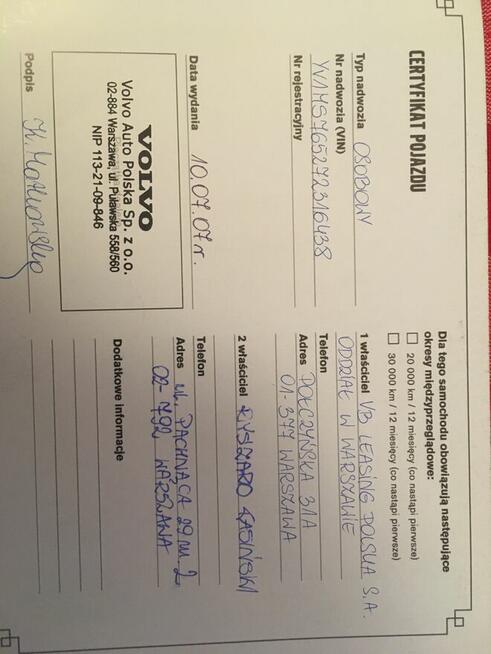 CERTYFIKAT POJAZDU
Typ nadwozia OSOBOWY
Nr nadwozia (VIN)
YV1MS765272316438
Nr rejestracyjny
Data wydania 10.07.07r.
VOLVO
Volvo Auto Polska Sp. z o.o.
02-884 Warszawa, ul. Puławska 558/560
NIP 113-21-09-846
Podpis
Dla tego samochodu obowiązują następujące
okresy międzyprzeglądowe:
20 000 km / 12 miesięcy (co nastąpi pierwsze)
30 000 km / 12 miesięcy (co nastąpi pierwsze)
1 właściciel VB LEASING POLSKA S.A.
ODDZIAŁ W WARSZAWIE
Telefon
Adres POŁCZYŃSKA 31A
01-377 WARSZAWA
2 właściciel RYSZARD
Telefon
Adres ul. PACHNĄCA 29 m. 2
02-792 WARSZAWA
Dodatkowe informacje